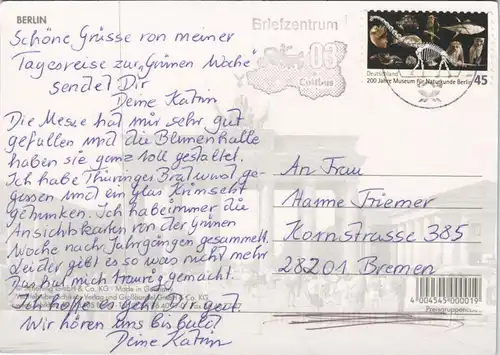 BERLIN
Schöne Grüsse von meiner
Tagesreise zur „Grünen Woche"
sendet Dir
Deine Katrin
Die Messe hat mir sehr gut
gefallen und die Blumenhalle
haben sie ganz toll gestaltet.
Ich habe Thüringer Bratwurst ge-
gessen und ein Glas Krimsekt
getrunken. Ich habe immer die
Ansichtskarten von der Grünen
Woche nach Jahrgängen gesammelt.
Leider gibt es so was nicht mehr
Das hat mich traurig gemacht.
Ich hoffe es geht Dir gut.
Wir hören uns bis bald
Deine Katrin
Briefzentrum
03
Cottbus
Deutschland
200 Jahre Museum für Naturkunde Berlin 45
An Frau
Hanne Triemer
Kornstrasse 385
28201 Bremen
4 004545 000019
Preisgruppencode